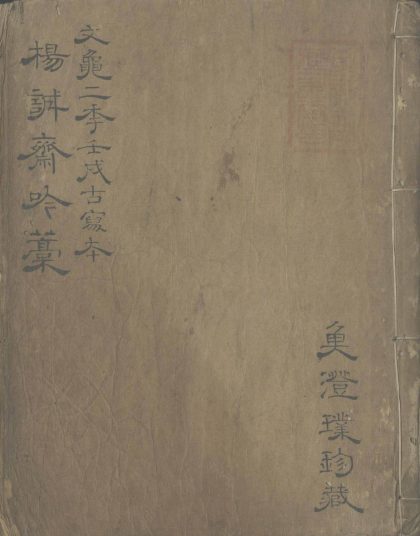 魚澄璞珍藏
文龜二秊壬戌古寫本
楊誠齋吟藁